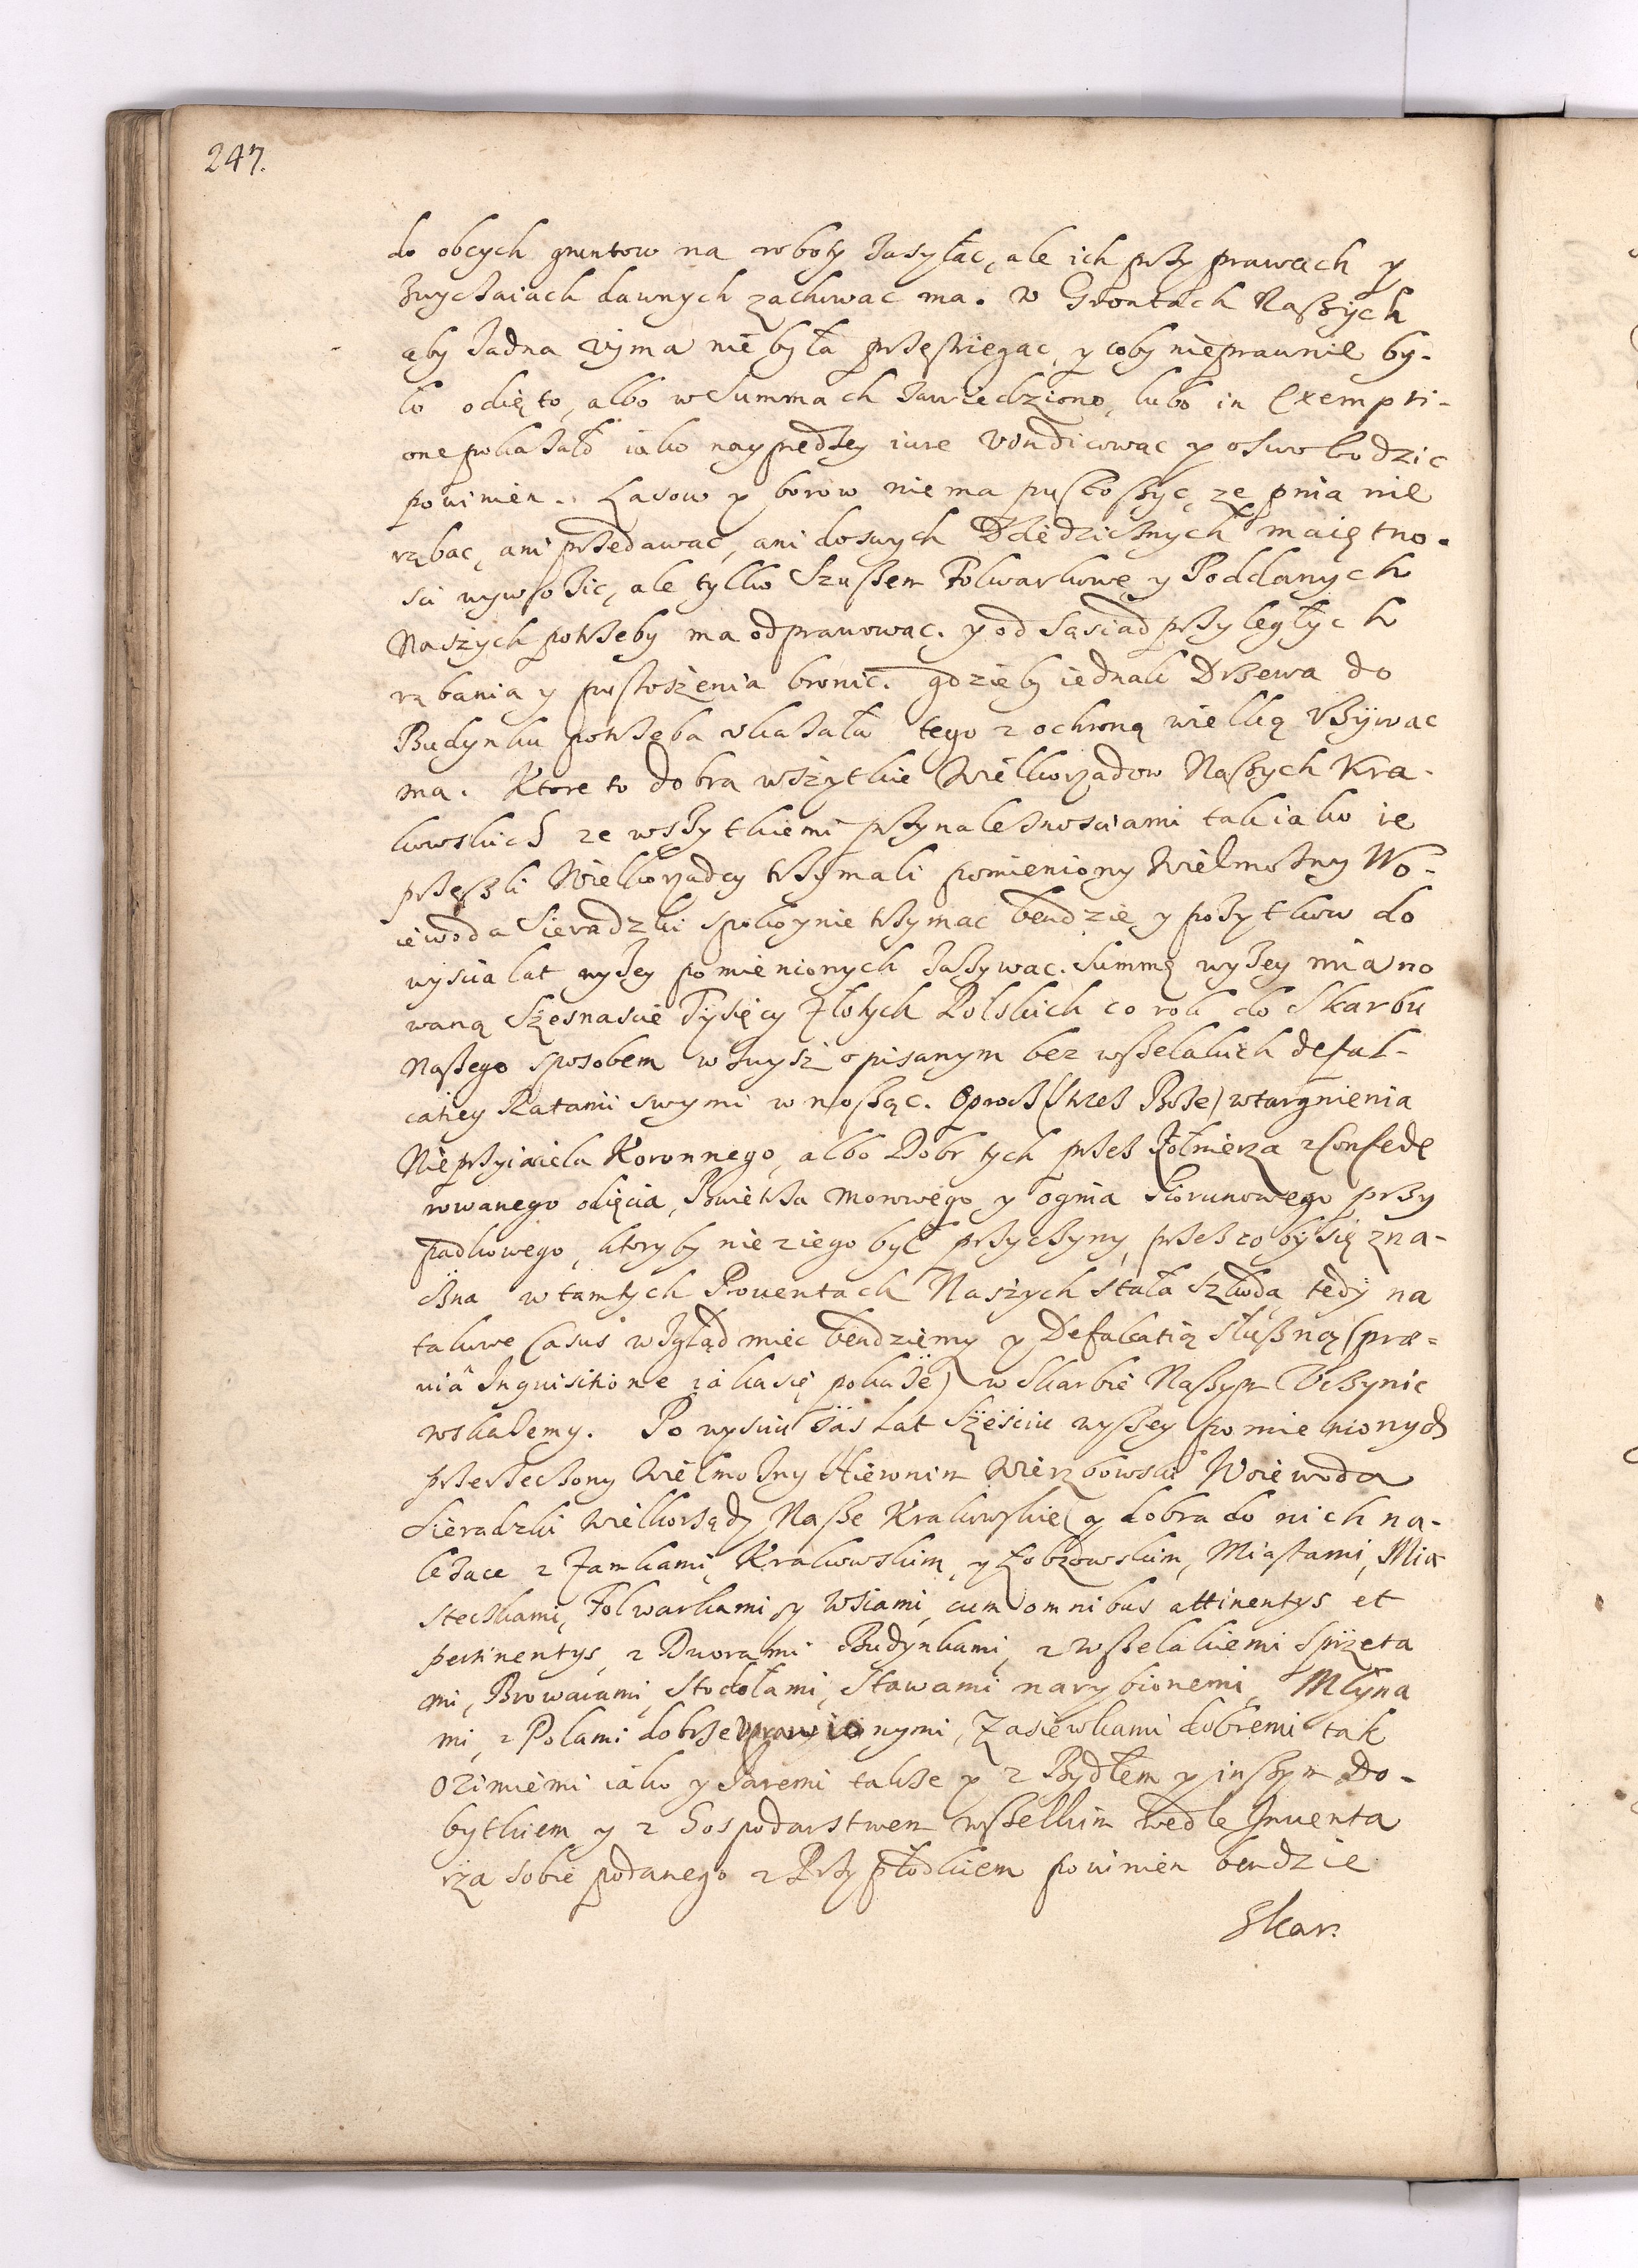 247.
do obcych gruntow na roboty zasyłac, ale ich przy prawach y
zwyczaiach dawnych zachowac ma. w Grontach Naszych
aby zadna vyma nie była przestrzegac, y coby nieprawnie by-
lo odięto, albo w Summach zawiedziono, lubo in Exempti-
one pokazało iako nayprędzey iure vendicowac y oswobodzic
powinien. Lasow y borow nie ma pustoszyc, ze pnia nie
rąbac, ani przedawac, ani do swych Dziedzicznych maiętno-
sci wywozic, ale tylko Szuszem Folwarkowe y Poddanych
Naszych potrzeby ma odprawowac. y od Sąsiad przyległych
rąbania y pustoszenia bronic. gdzieby iednak Drzewa do
Budynku potrzeba vkazała tego z ochroną wielką vzywac
ma. Ktore to dobra wszytkie Wielkorządow Naszych Kra-
kowskich ze wszytkiemi przynaleznosciami tak iako ie
przeszli Wielkorządcy trzymali pomieniony Wielmozny Wo-
iewoda Sieradzki spokoynie trzymac bendzie y pozytkow do
wyscia lat wyzey pomienionych zazywac. Summę wyzey miano
waną Szesnascie Tysięcy Złotych Polskich co rok do Skarbu
Naszego sposobem wzwysz opisanym bez wszelakich defal-
catiey Ratami swymi wnosząc. Oprocz (strzez Boze) wtargnienia
Nieprzyiaciela Koronnego, albo Dobr tych przez Zołnierza zConfede
rowanego odięcia, Powietrza morowego y ognia Piorunowego przy
padkowego, ktoryby nie z iego był przyczyny, przez coby się zna-
czna w tamtych Prouentach Naszych stała szkoda tedy na
takowe Casus wzgląd miec bendziemy y Defalcatią słuszną (præ-
uiâ Inquisitione iaka się pokaze) w Skarbie Naszym Vczynic
wskazemy. Po wysciu zas Lat Szesciu wyszey pomienionych
przerzeczony Wielmozny Hieronim Wierzbowski Woiewoda
Sieradzki Wielkorządy Nasze Krakowskie y dobra do nich na-
lezące z Zamkami, Krakowskim, y Łobzowskim, Miastami, Mia
steczkami, Folwarkami y Wsiami, cum omnibus attinentys et
pertinentys, z Dworami Budynkami, z wszelakiemi sprzęta
mi, Browarami, Stodołami, Stawami narybionemi, Młyna
mi, z Polami dobrze vprawionymi, Zasiewkami dobremi tak
ozimiemi iako y Jaremi takze y z Bydłem y inszym Do-
bytkiem y z Gospodarstwem wszelkim wedle Inuenta
rza sobie podanego z Przypłodkiem powinien bendzie
Skar: